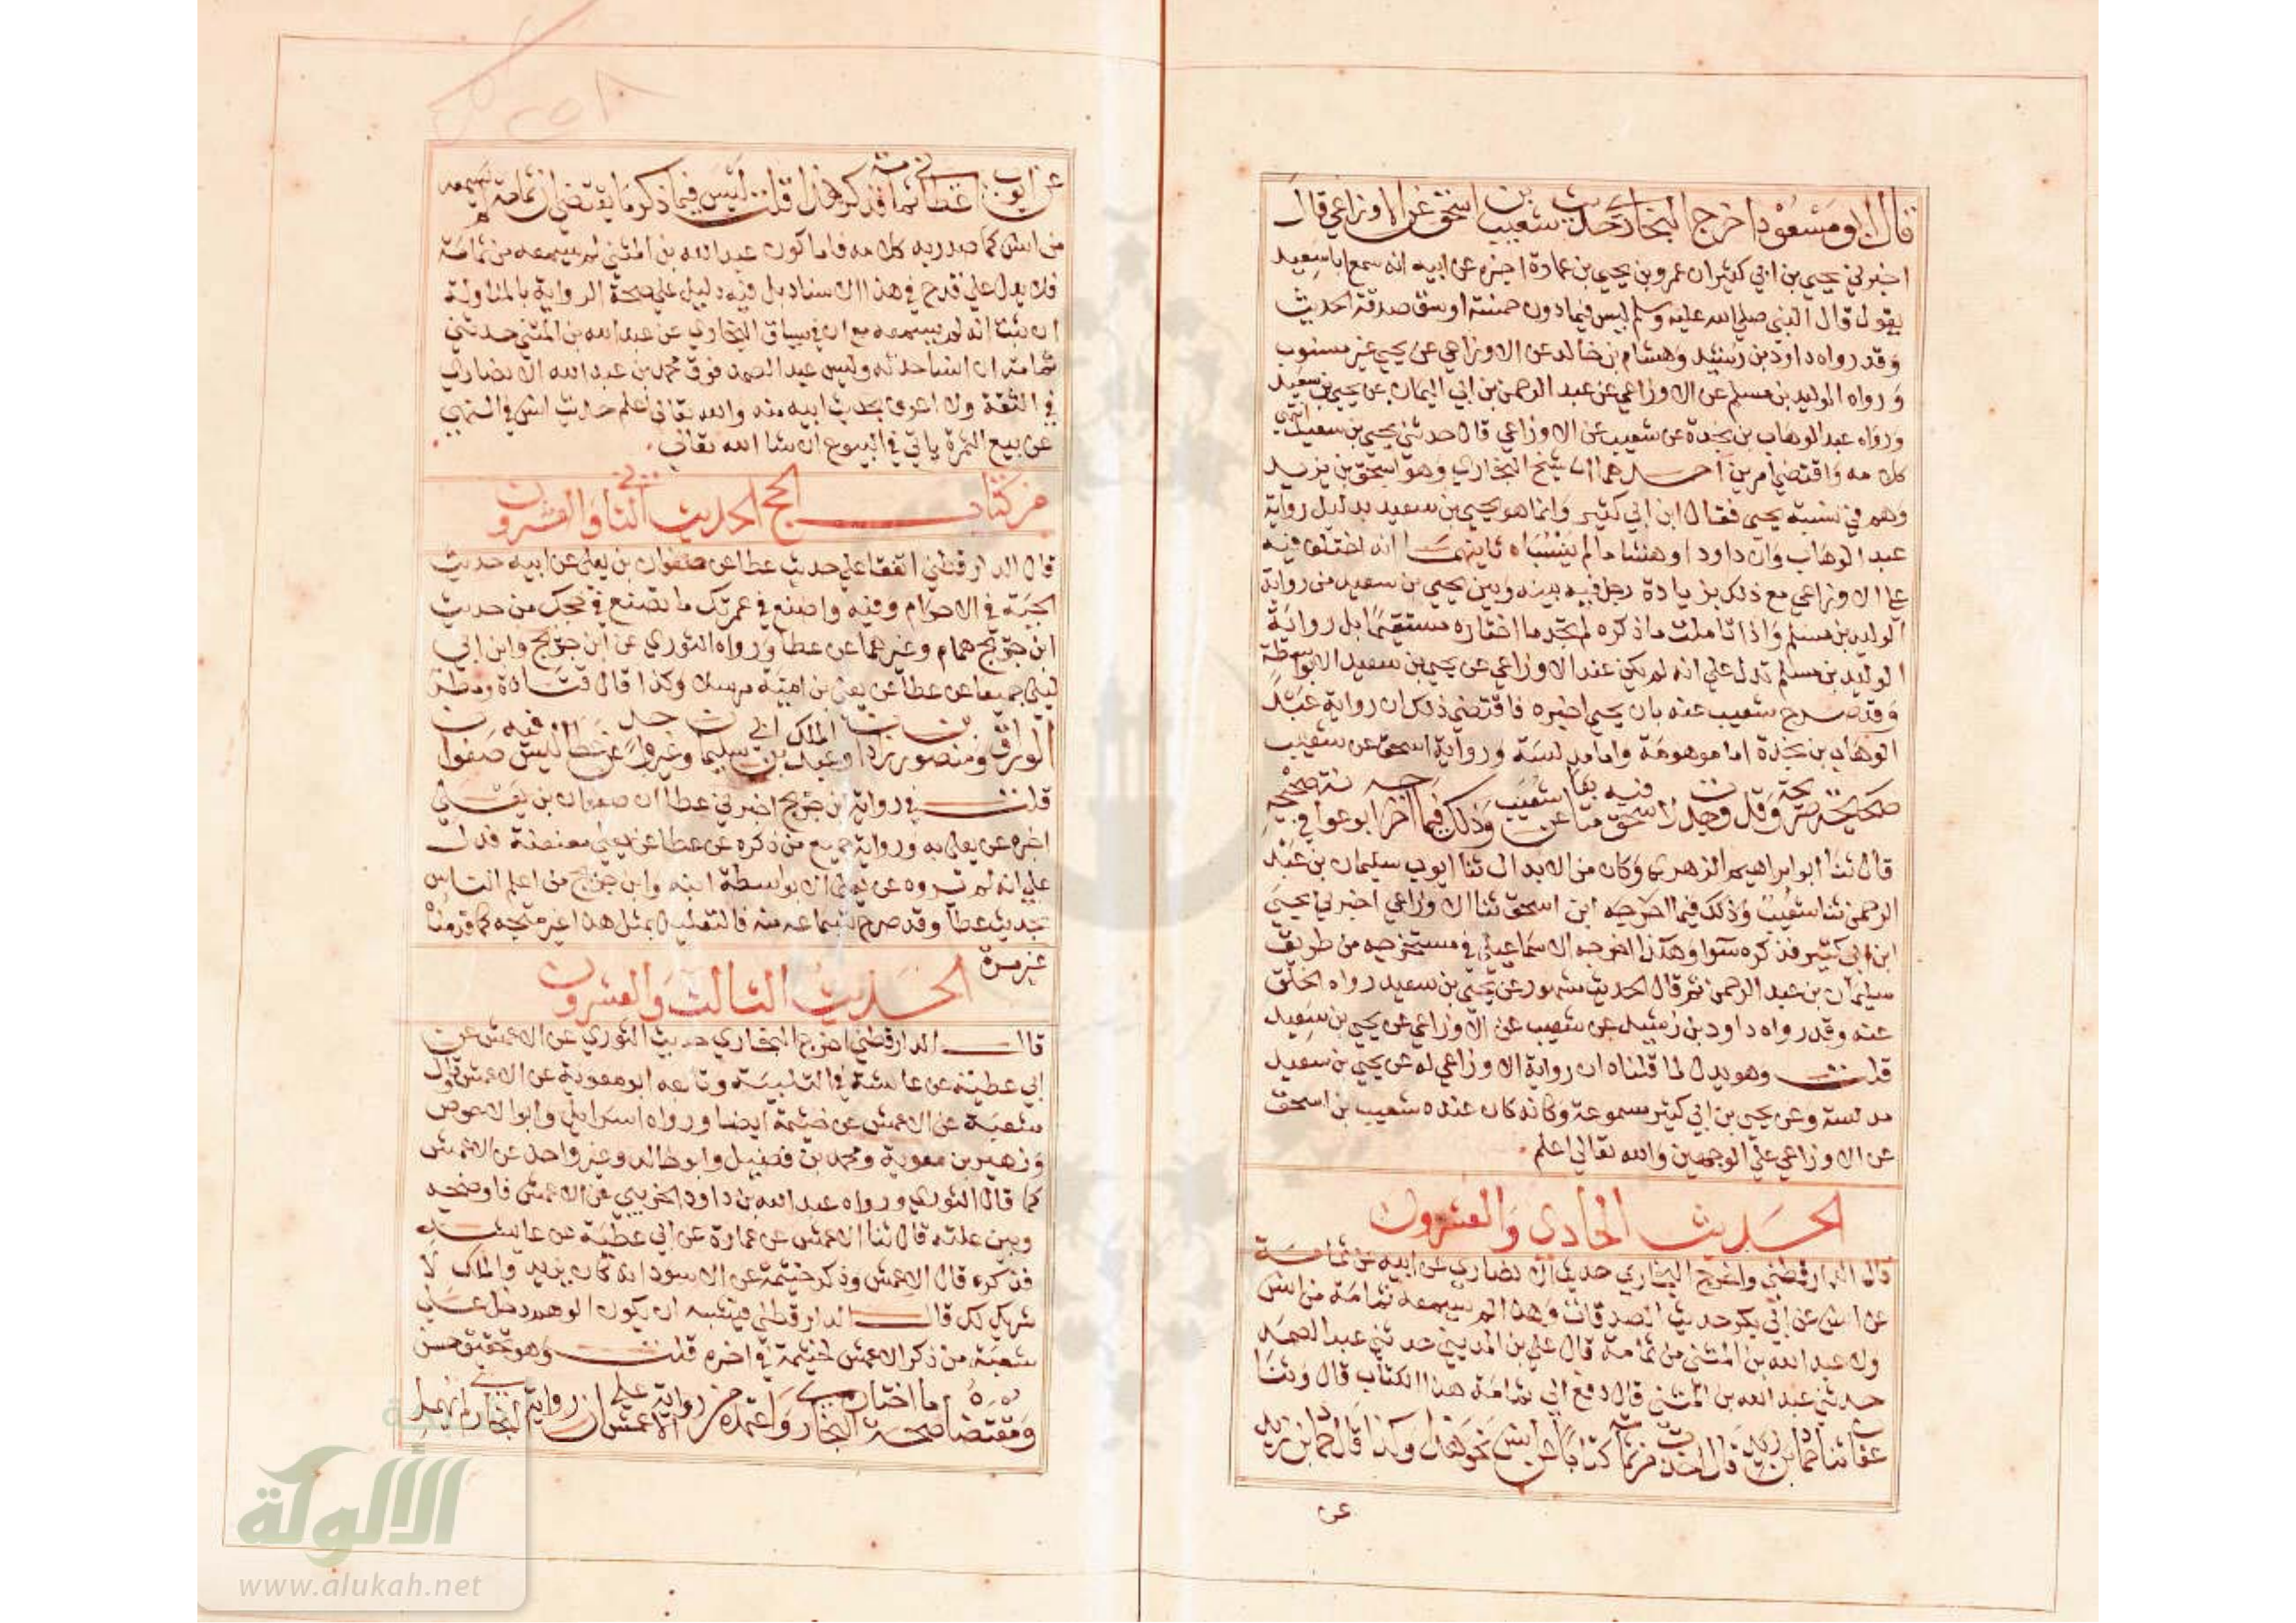 قال ابو مسعود اخرج البخاري حديث شعيب بن اسحق عن الاوزاعي قال
اخبرني يحيى بن ابي كثير ان عمرو بن يحيى بن عمارة اخبره عن ابيه انه سمع ابا سعيد
يقول قال النبي صلى الله عليه وسلم ليس فيما دون خمسة اوسق صدقة الحديث
وقد رواه داود بن رشيد وهشام بن خالد عن الاوزاعي عن يحيى غير منسوب
ورواه الوليد بن مسلم عن الاوزاعي عن عبد الرحمن بن ابي اليمان عن يحيى بن سعيد
ورواه عبد الوهاب بن نجدة عن شعيب عن الاوزاعي قال حدثني يحيى بن سعيد انتهى
كلامه واقتضى امرين احدهما ان شيخ البخاري وهو اسحق بن يزيد
وهم في نسبة يحيى فقال ابن ابي كثير وانما هو يحيى بن سعيد بدليل رواية
عبد الوهاب وان داود وهشاما لم ينسباه ثانيهما انه اختلف فيه
على الاوزاعي مع ذلك بزيادة رجل فيه بينه وبين يحيى بن سعيد من رواية
الوليد بن مسلم واذا تاملت ما ذكره لم تجد ما اختاره مستقيما بل رواية
الوليد بن مسلم تدل على انه لم يكن عند الاوزاعي عن يحيى بن سعيد الا بواسطة
وقد صرح شعيب عنه بان يحيى اخبره فاقتضى ذلك ان رواية عبد
الوهاب بن نجدة اما موهومة واما مدلسة ورواية اسحق عن شعيب
صحيحة صريحة وقد وجدت لاسحق فيه متابعا عن شعيب وذلك فيما اخرجه ابو عوانة في صحيحه
قال ثنا ابو ابراهيم الزهري وكان من الابدال ثنا ايوب سليمان بن عبد
الرحمن ثنا شعيب وذلك فيما اخرجه ابن اسحق ثنا الاوزاعي اخبرني يحيى
ابن ابي كثير فذكره سوا وهكذا اخرجه الاسماعيلي في مستخرجه من طريق
سليمان بن عبد الرحمن ثم قال الحديث مشهور عن يحيى بن سعيد رواه الخلق
عنه وقد رواه داود بن رشيد عن شعيب عن الاوزاعي عن يحيى بن سعيد
قلت وهو يدل لما قلناه ان رواية الاوزاعي له عن يحيى بن سعيد
مدلسة وعن يحيى بن ابي كثير مسموعة وكانه كان عنده شعيب بن اسحق
عن الاوزاعي على الوجهين والله تعالى اعلم
الحديث الحادي والعشرون
قال الدارقطني واخرج البخاري حديث الانصاري عن ابيه عن ثمامة
عن انس عن ابي بكر حديث الصدقات وهذا لم يسمعه ثمامة من انس
ولا عبد الله بن المثنى من ثمامة قال علي بن المديني حدثني عبد الصمد
حدثني عبد الله بن المثنى قال دفع الي ثمامة هذا الكتاب قال وثنا
عفان ثنا حماد بن زيد قال اخذت من ثمامة كتابا عن انس نحو هذا وكذا قال حماد بن زيد
عن
عن ايوب اعطاني ثمامة فذكر هذا قلت ليس فيما ذكر ما يقتضي ان ثمامة لم يسمعه
من انس كما صدر به كلامه فاما كون عبد الله بن المثنى لم يسمعه من ثمامة
فلا يدل على قدح في هذا الاسناد بل فيه دليل على صحة الرواية بالمناولة
ان ثبت انه لم يسمعه مع ان في سياق البخاري عن عبد الله بن المثنى حدثني
ثمامة ان انسا حدثه وليس عبد الصمد فوق محمد بن عبد الله الانصاري
في الثقة ولا اعرف بحديث ابيه منه والله تعالى اعلم حديث انس في النهي
عن بيع الثمرة ياتي في البيوع ان شا الله تعالى
من كتاب الحج الحديث الثاني والعشرون
قال الدارقطني اتفقا على حديث عطا عن صفوان بن يعلى عن ابيه حديث
الجبة في الاحرام وفيه واصنع في عمرتك ما تصنع في حجك من حديث
ابن جريج همام وغيرهما عن عطا ورواه الثوري عن ابن جريج وابن ابي
ليلى جميعا عن عطا عن يعلى بن امية مرسلا وكذا قال قتادة ومطر
الوراق ومنصور بن زاذان وعبد الملك بن ابي سليمان وغير واحد عن عطا ليس فيه صفوان
قلت في رواية ابن جريج اخبرني عطا ان صفوان بن يعلى
اخبره عن يعلى به ورواية جميع من ذكره عن عطا عن يعلى معنعنة فدل
على انه لم يروه عن يعلى الا بواسطة ابنه وابن جريج من اعلم الناس
بحديث عطا وقد صرح بسماعه منه فالتعليل بمثل هذا غير متجه كما قدمنا
غير مرة
الحديث الثالث والعشرون
قال الدارقطني اخرج البخاري حديث الثوري عن الاعمش عن
ابي عطية عن عائشة في التلبية وتابعه ابو معوية عن الاعمش وقال
شعبة عن الاعمش عن خيثمة ايضا ورواه اسرائيل وابو الاحوص
وزهير بن معوية ومحمد بن فضيل وابو خالد وغير واحد عن الاعمش
كما قال الثوري ورواه عبد الله بن داود الخريبي عن الاعمش فاوضحه
وبين علته قال ثنا الاعمش عن عمارة عن ابي عطية عن عائشة
فذكره قال الاعمش وذكر خيثمة عن الاسود انه كان يزيد والملك لا
شريك لك قال الدارقطني فيشبه ان يكون الوهم دخل على
شعبة من ذكر الاعمش لخيثمة في اخره قلت وهو تحقيق حسن
ومقتضاه صحة ما اختاره البخاري واعتمده من رواية الاعمش على ان رواية البخاري
الألوكة
www.alukah.net